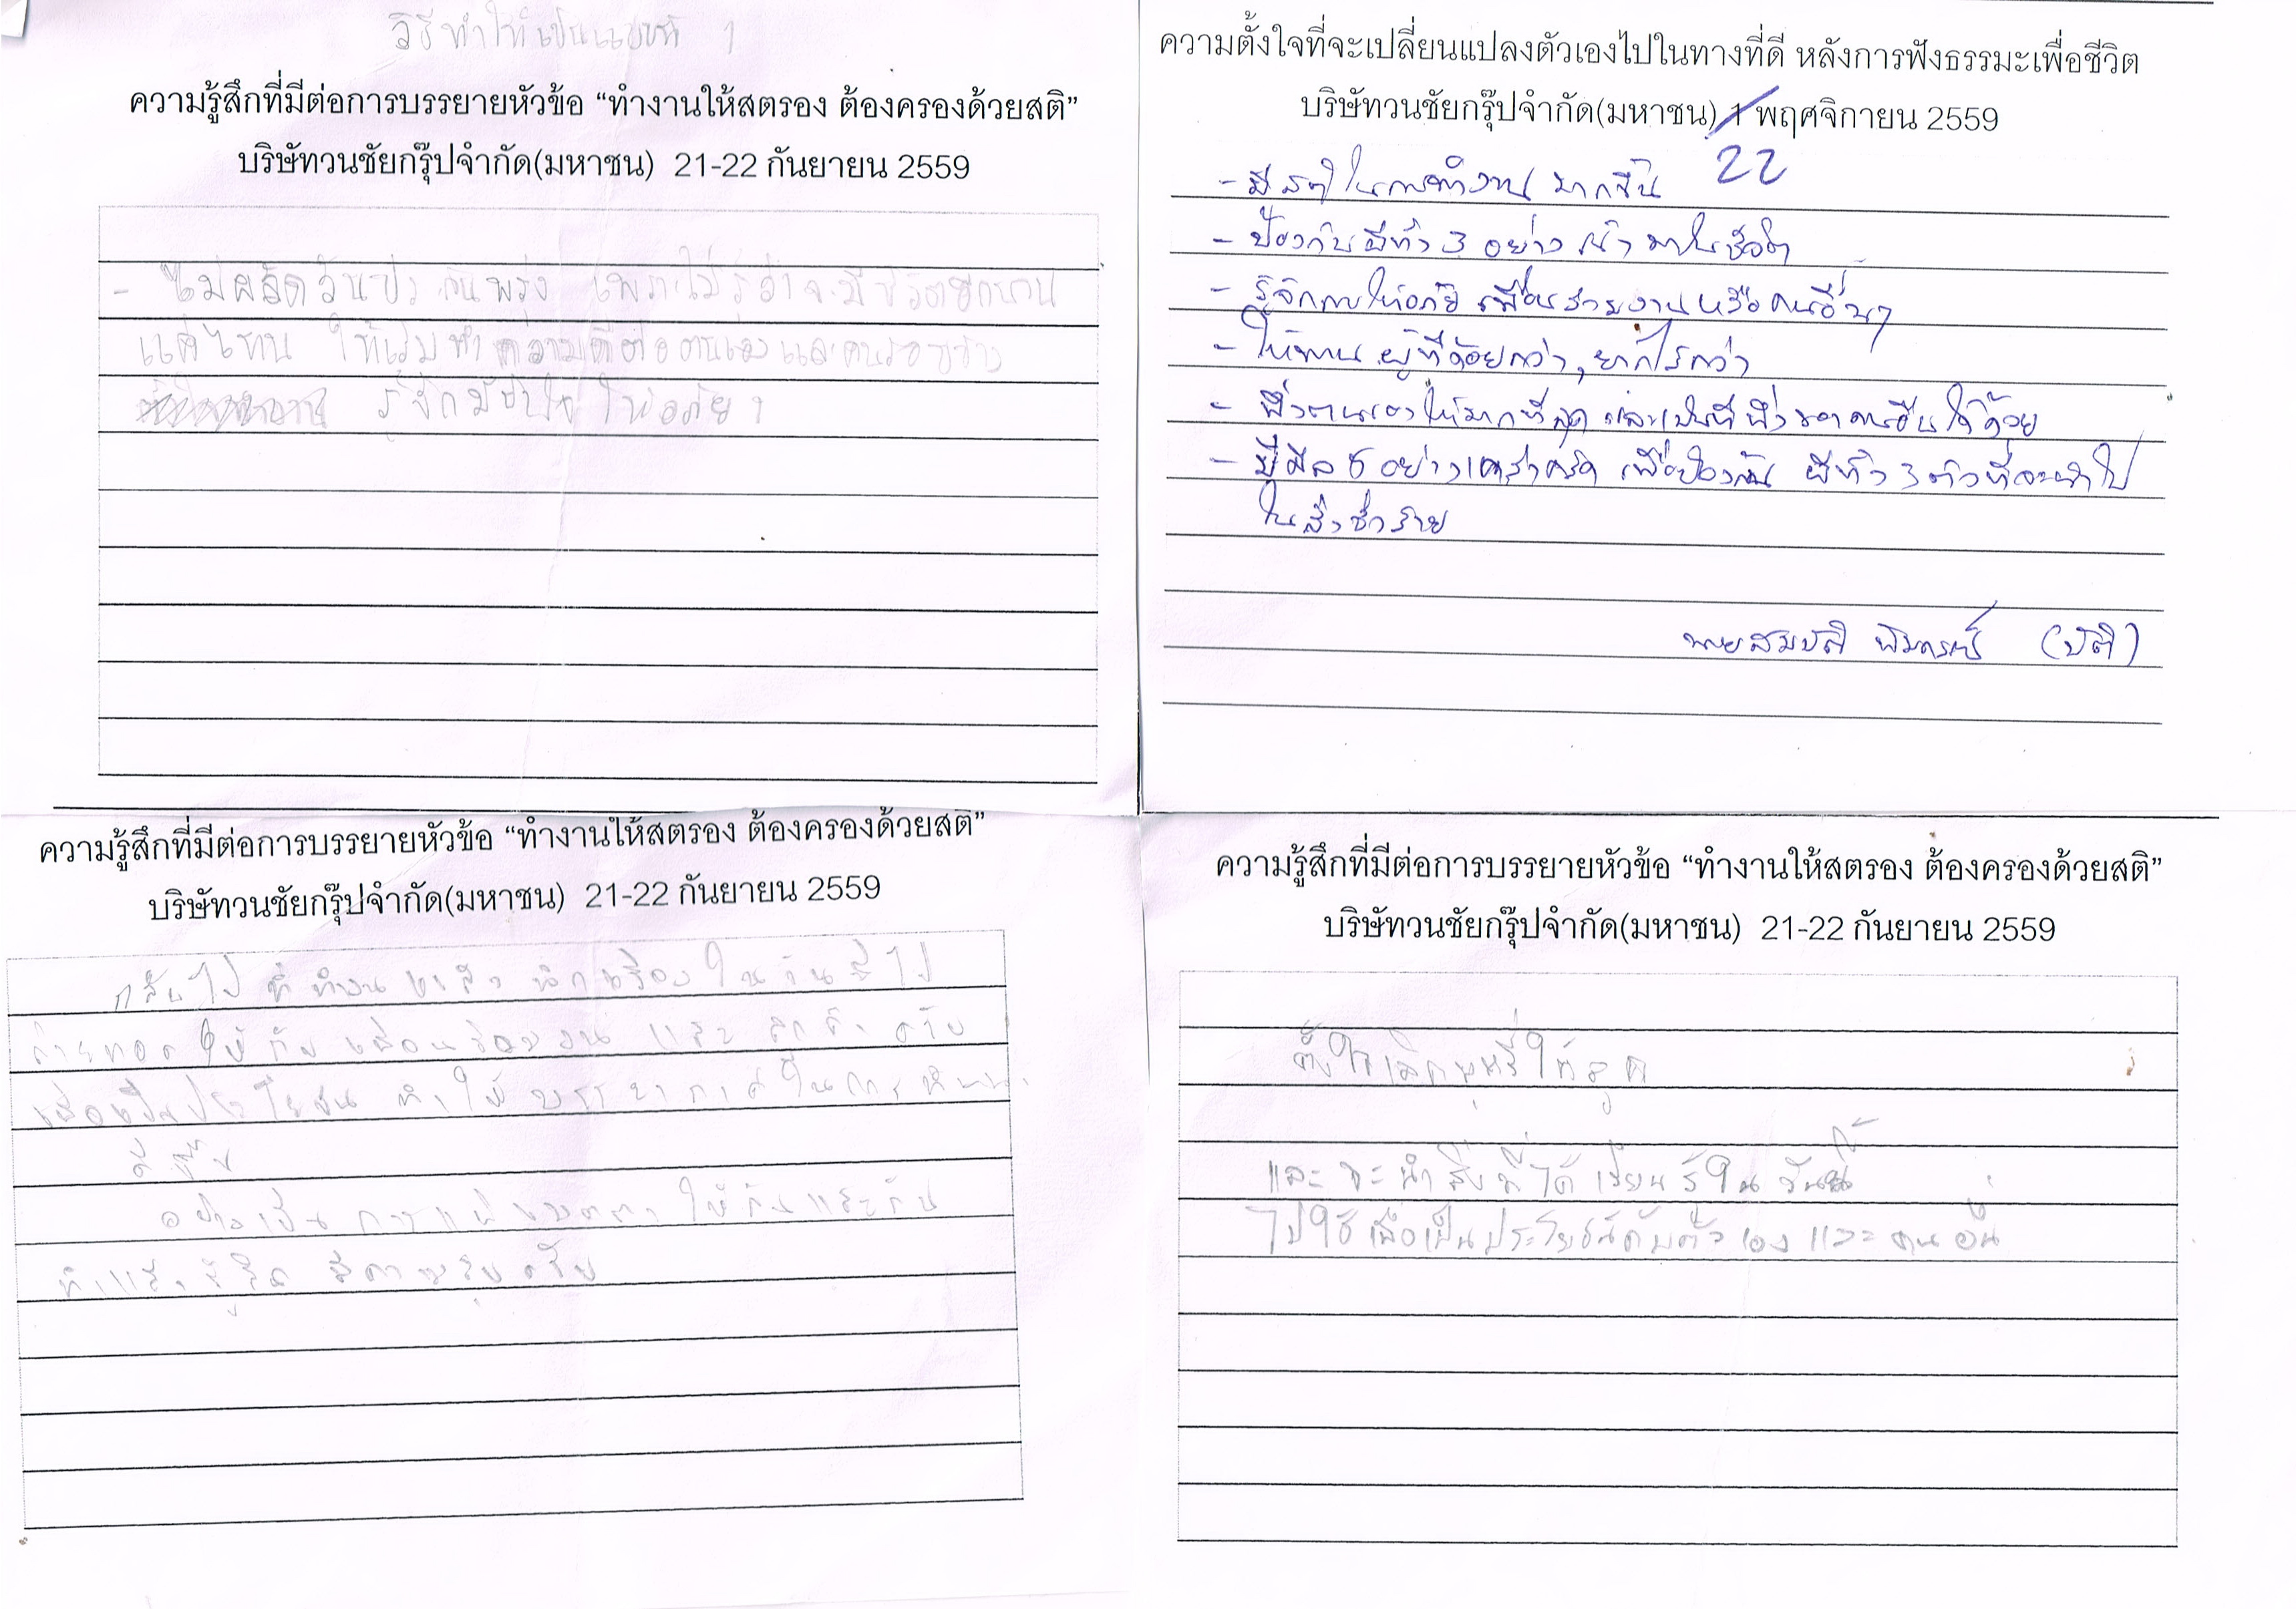 วิธีทำใจที่เป็นแบบที่ 1
ความรู้สึกที่มีต่อการบรรยายหัวข้อ “ทำงานให้สตรอง ต้องครองด้วยสติ”
บริษัทวนชัยกรุ๊ปจำกัด(มหาชน) 21-22 กันยายน 2559
- ไม่ผลัดวันประกันพรุ่ง เพราะไม่รู้ว่าจะมีชีวิตอีกนาน
แค่ไหน ให้เริ่มทำความดีต่อตนเองและคนรอบข้าง
รู้จักมีน้ำใจ ให้อภัย
ความตั้งใจที่จะเปลี่ยนแปลงตัวเองไปในทางที่ดี หลังการฟังธรรมะเพื่อชีวิต
บริษัทวนชัยกรุ๊ปจำกัด(มหาชน) 1 พฤศจิกายน 2559
22
- มีสติในการทำงาน มากขึ้น
- ป้องกันผีทั้ง 3 อย่าง เข้ามาในชีวิต
- รู้จักการให้อภัย เพื่อนร่วมงานหรือคนอื่นๆ
- ให้ทาน ผู้ที่ด้อยกว่า, ยากไร้กว่า
- พึ่งตนเองให้มากที่สุด และเป็นที่พึ่งของคนอื่นได้ด้วย
- มีศีล 5 อย่างเคร่งครัด เพื่อป้องกัน ผีทั้ง 3 ตัวที่จะนำไป
ในสิ่งชั่วร้าย
นายสมบัติ (บัติ)
ความรู้สึกที่มีต่อการบรรยายหัวข้อ “ทำงานให้สตรอง ต้องครองด้วยสติ”
บริษัทวนชัยกรุ๊ปจำกัด(มหาชน) 21-22 กันยายน 2559
กลับไป ที่ทำงาน แล้ว เรื่อง ในวันนี้ ไป
ถ่ายทอด ให้กับ เพื่อนร่วมงาน และ ครับ
เพื่อเป็นประโยชน์ ทำให้ บรรยากาศในการทำงาน
ดีขึ้น
อย่างเป็น การแผ่เมตตา ให้กันและกัน
ทำแล้ว รู้สึก มีความสุขครับ
ความรู้สึกที่มีต่อการบรรยายหัวข้อ “ทำงานให้สตรอง ต้องครองด้วยสติ”
บริษัทวนชัยกรุ๊ปจำกัด(มหาชน) 21-22 กันยายน 2559
ตั้งใจเลิกบุหรี่ให้ลูก
และ จะนำสิ่งที่ได้ เรียนรู้ใน วันนี้
ไปใช้ เพื่อเป็นประโยชน์กับตัวเอง และ คนอื่น